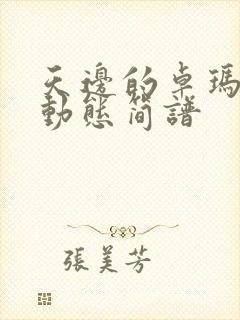 天邊的卓瑪
動態簡譜
張美芳